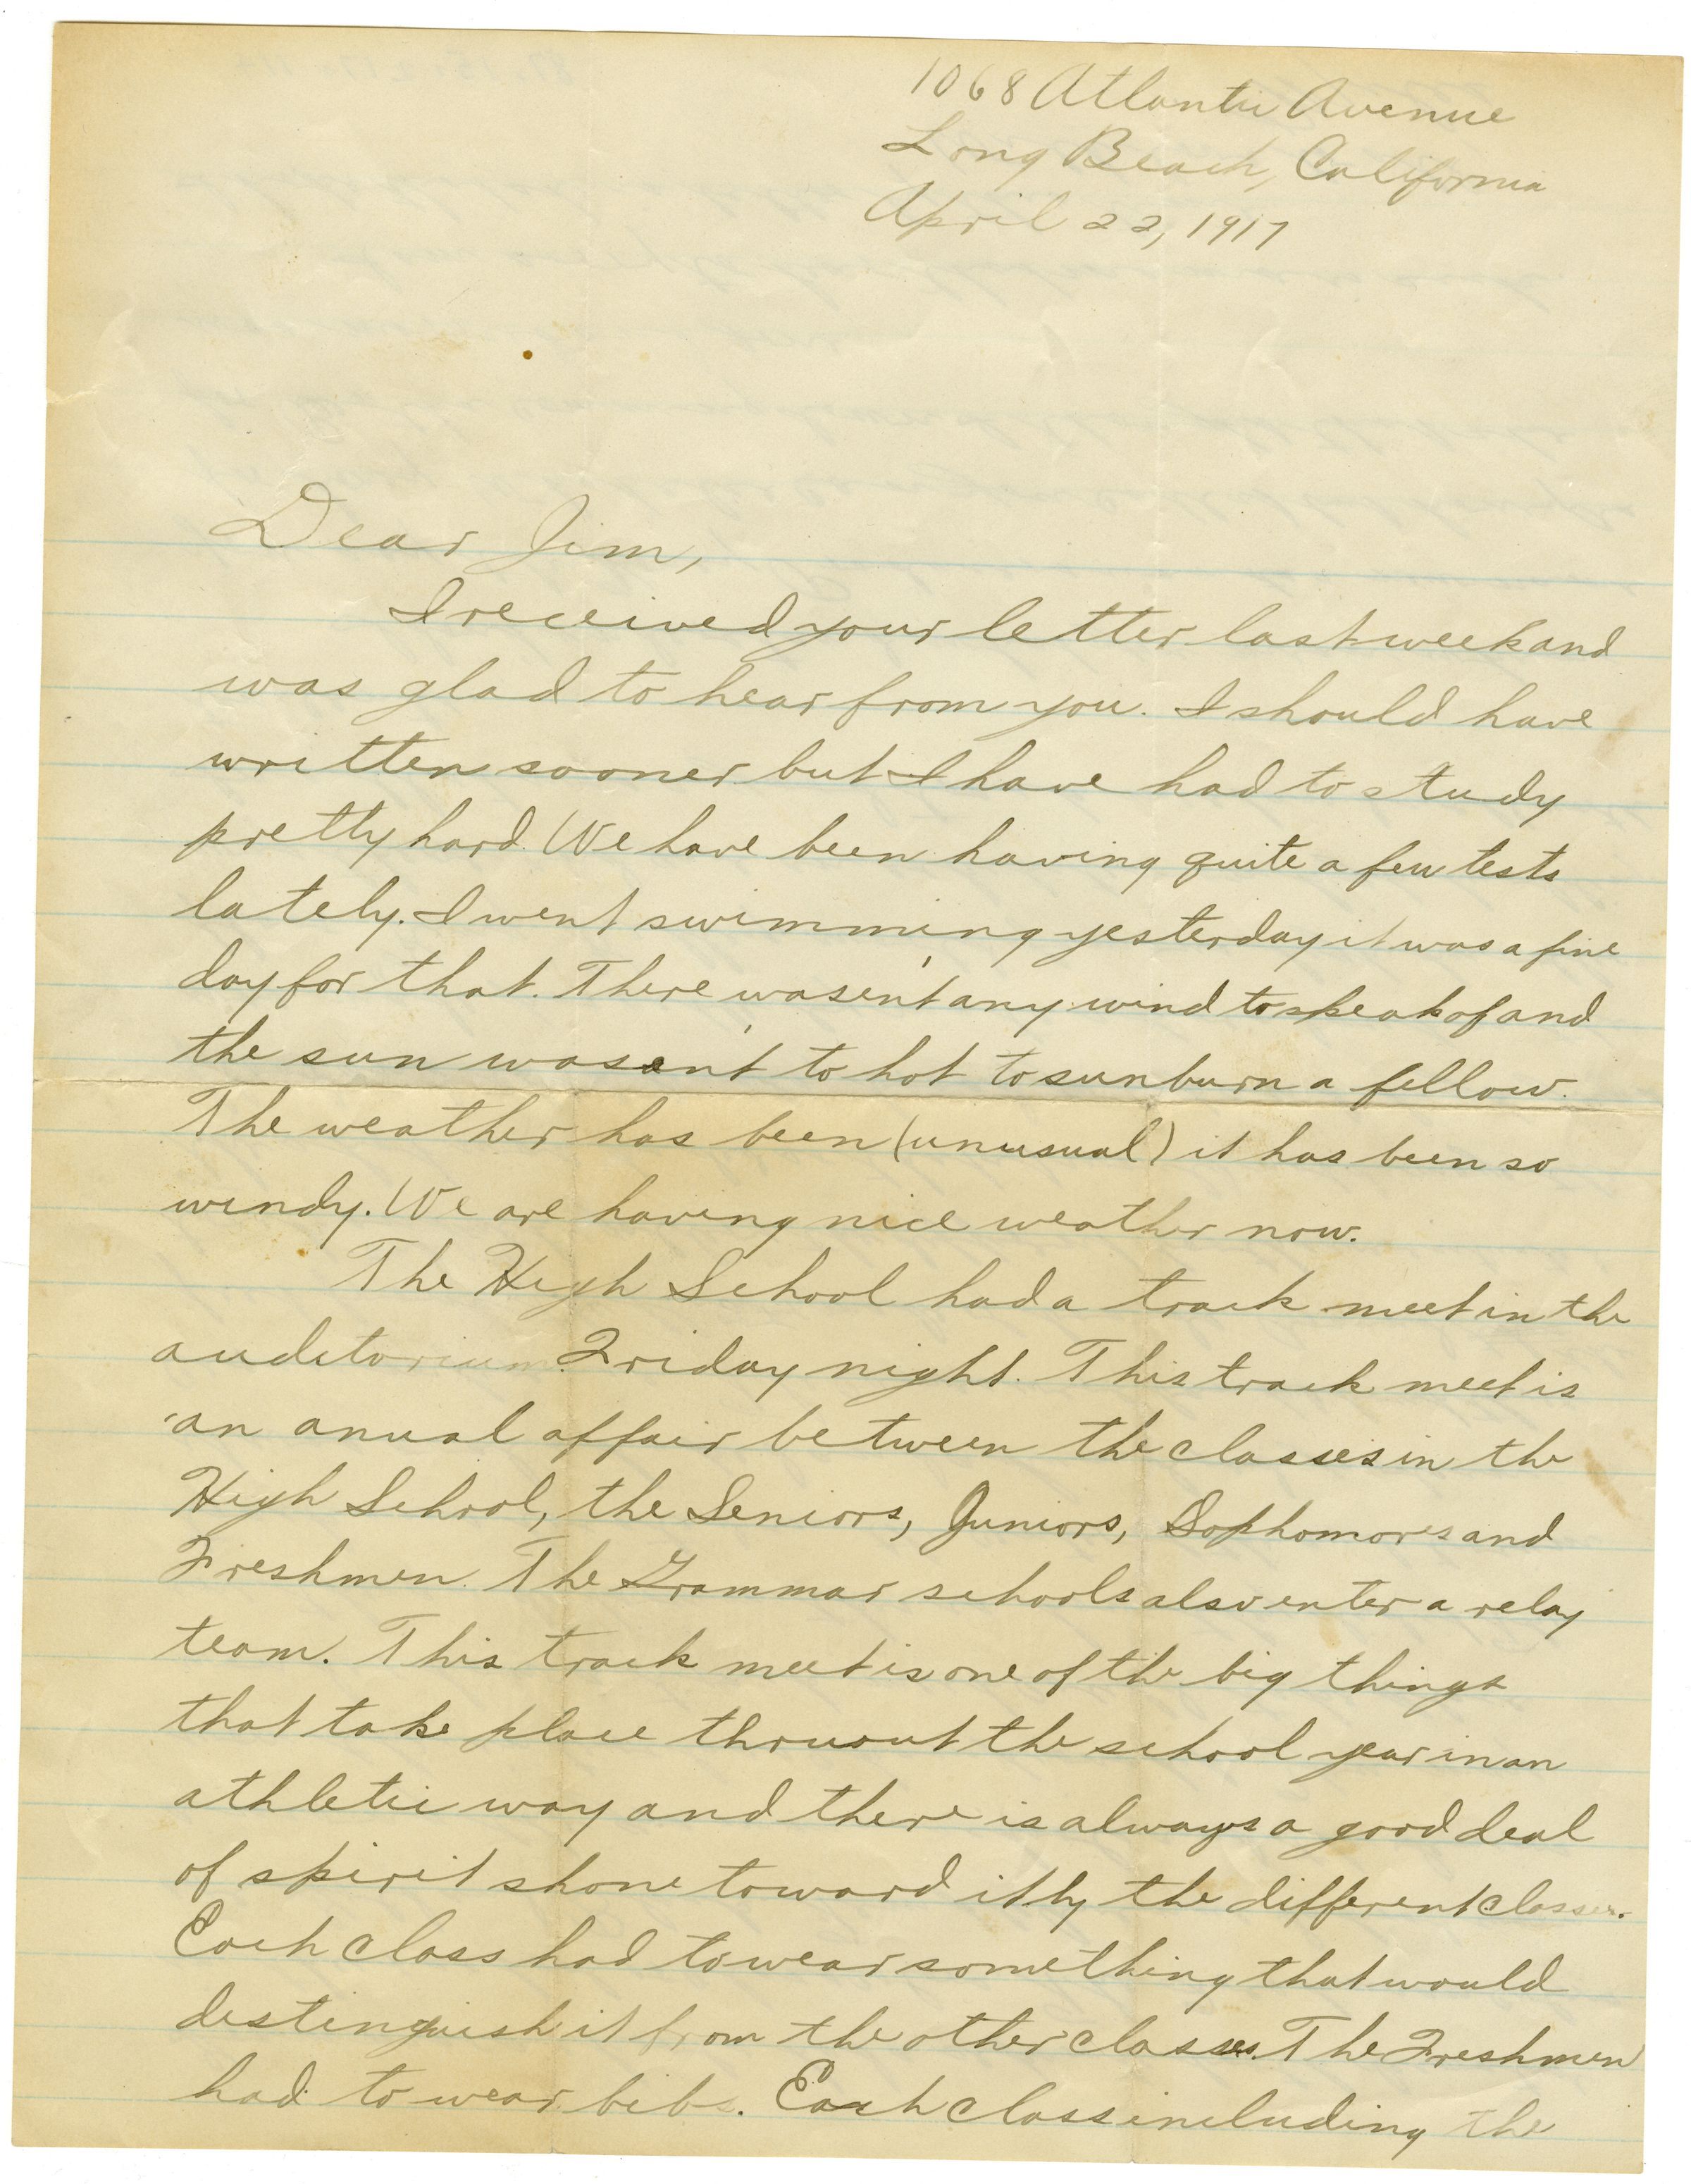 1068 Atlantic Avenue
Long Beach, California
April 22, 1917
Dear Jim,
I received your letter last week and
was glad to hear from you. I should have
written sooner but I have had to study
pretty hard. We have been having quite a few tests
lately. I went swimming yesterday it was a fine
day for that. There wasen't any wind to speak of and
the sun wasen't to hot to sunburn a fellow.
The weather has been (unusual) it has been so
windy. We are having nice weather now.
The High School had a track meet in the
auditorium Friday night. This track meet is
an anual affair between the classes in the
High School, the Seniors, Juniors, Sophomores and
Freshmen. The Grammar schools also enter a relay
team. This track meet is one of the big things
that take place thruout the school year in an
athletic way and there is always a good deal
of spirit shone toward it by the different classes.
Each class had to wear something that would
destinguish it from the other classes. The Freshmen
had to wear bibs. Each class including the